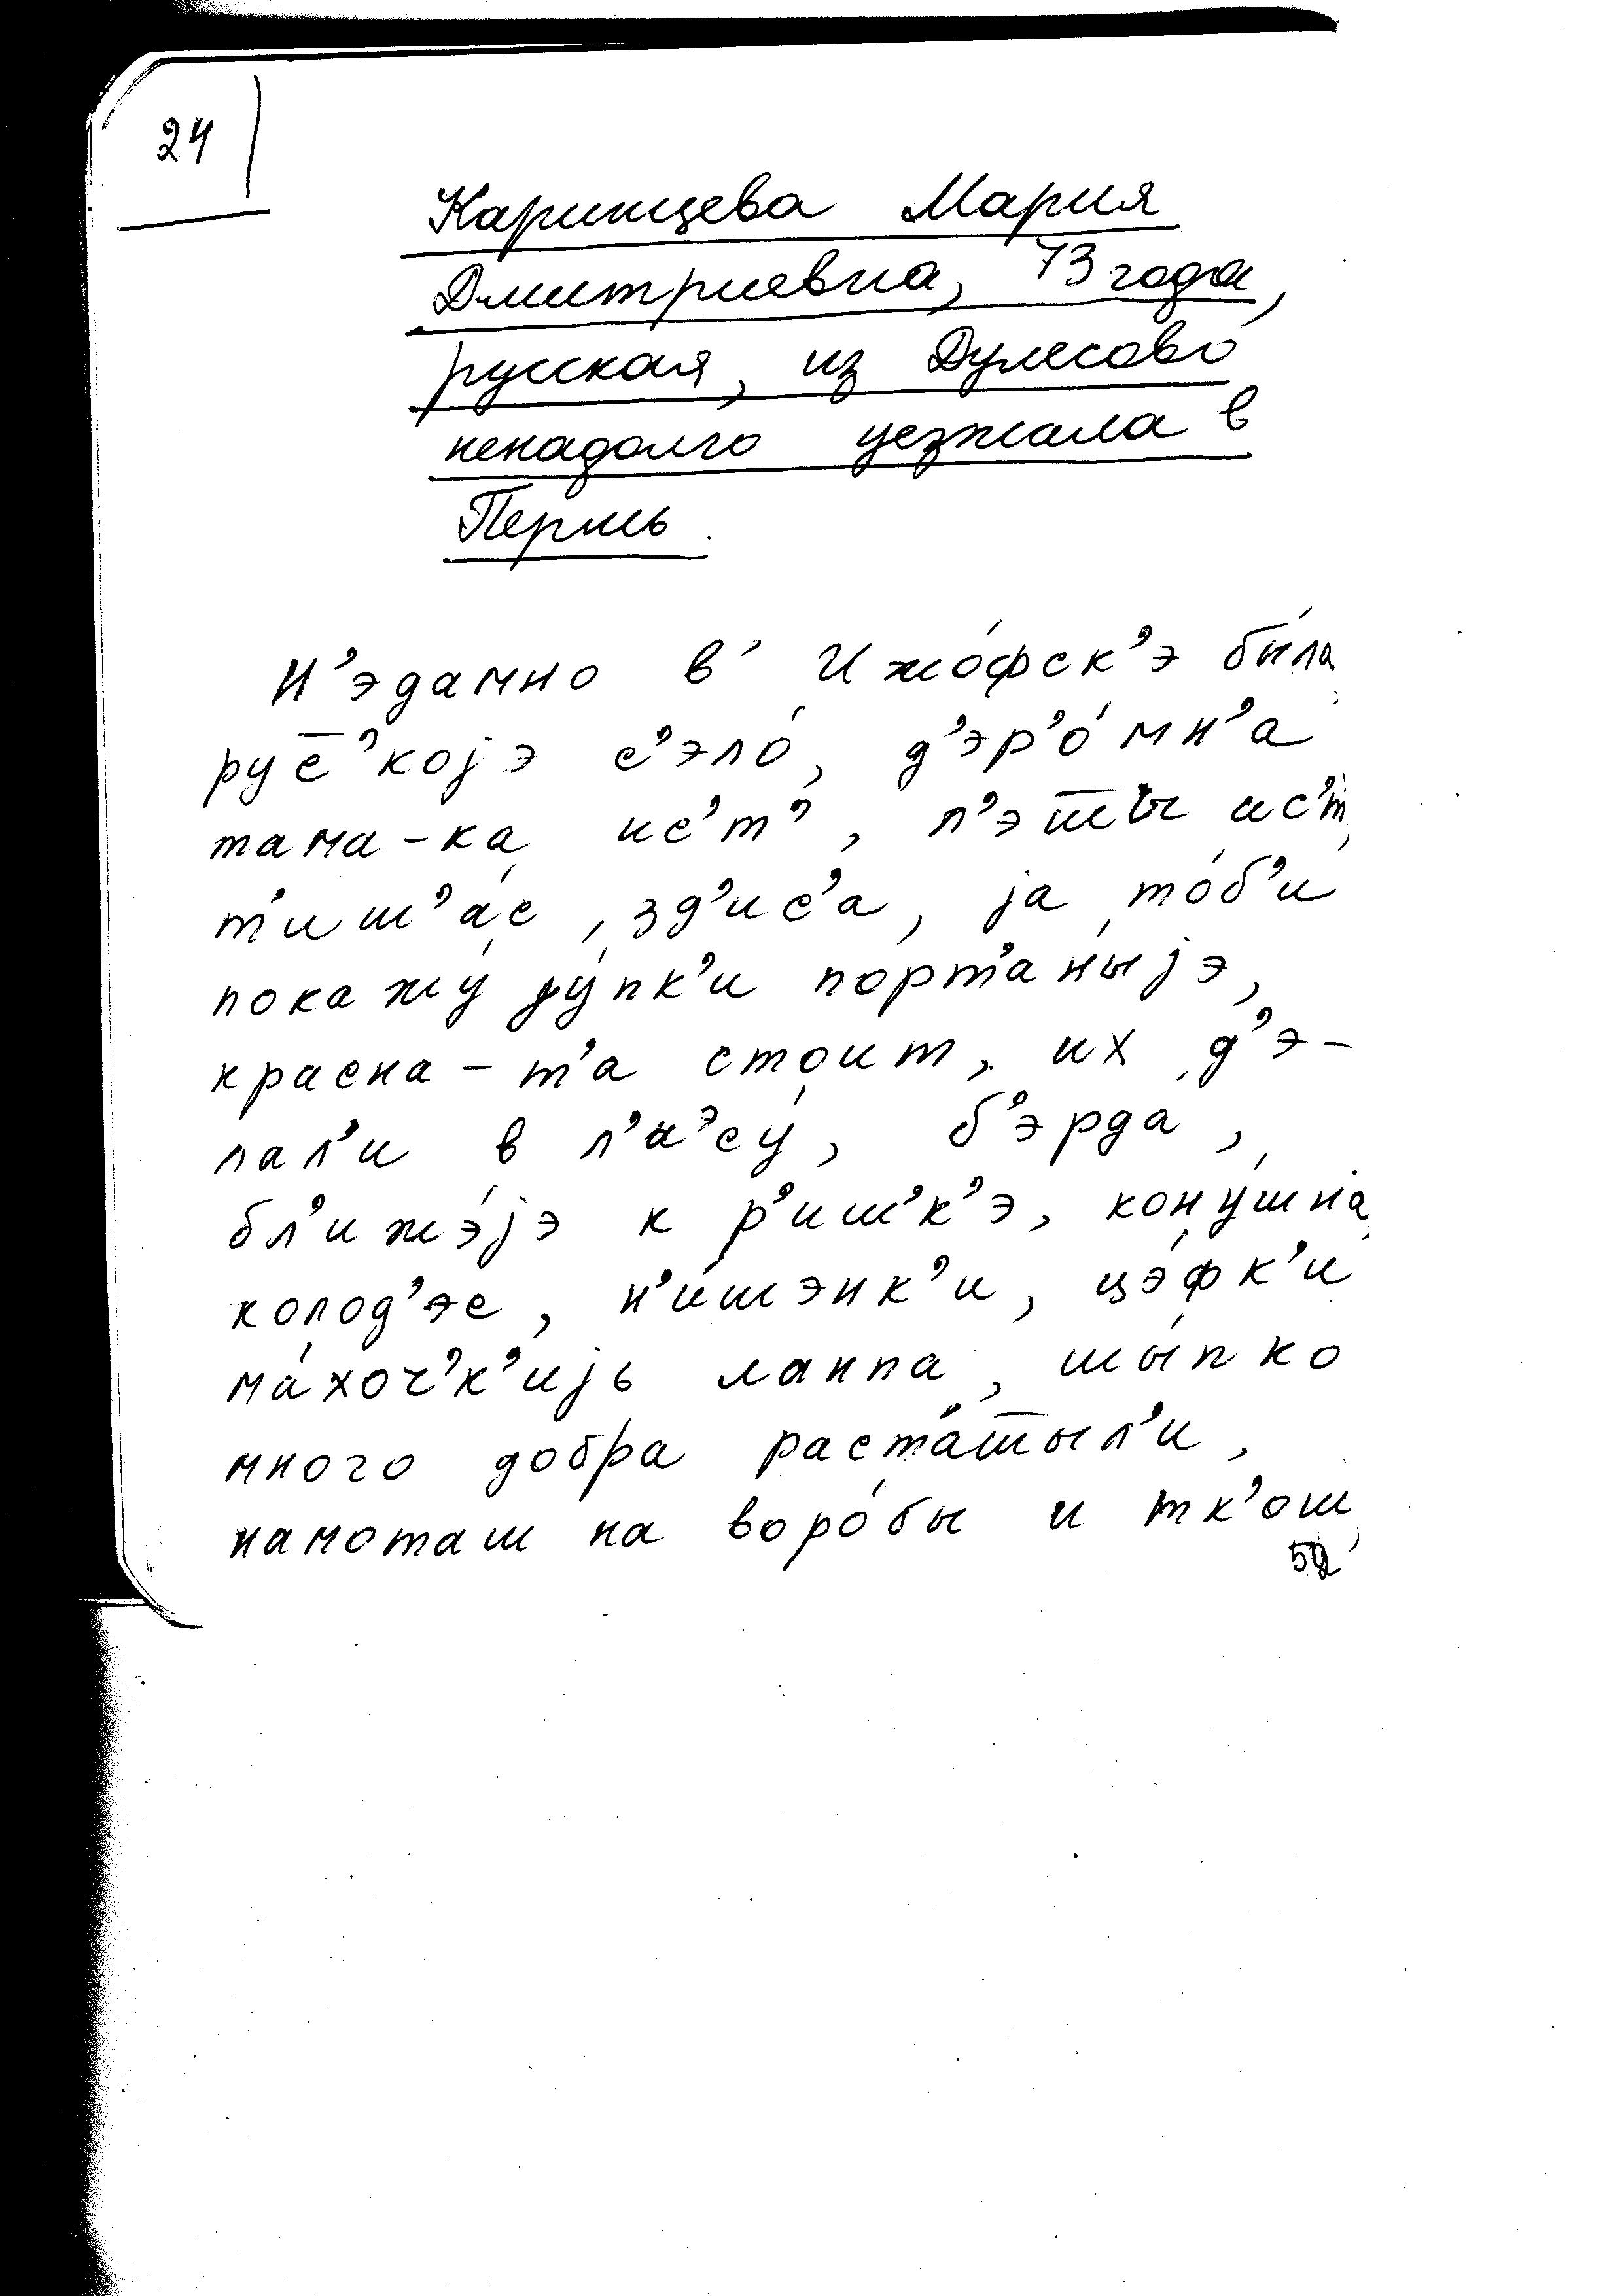 24
Каринцева Мария
Дмитриевна, 73 года,
русская, из Дулесово
ненадолго уезжала в
Пермь.
Н’эдамно в’ Ижо́фск’э бы́ла
рус̄’којэ с’эло́, д’эр’о́мн’а
тама-ка ис’т’, л’эт̄ы ис’т,
т’иш’а́с, зд’ис’а, ја то́б’и
покажу́ ју́пк’и порт’аныјэ,
красна-т’а стоит, их д’э-
лал’и в л’иэ̓су́, б’эрда,
бл’ижэ́јэ к р’иш’к’э, кону́шна
колод’эс, н’и́шэнк’и, цэ́фк’и
ма́хоч’к’ијь лаппа, шы́пко
много добра раста́ш̄ыл’и,
намоташ на воро́бы и тк’ош,